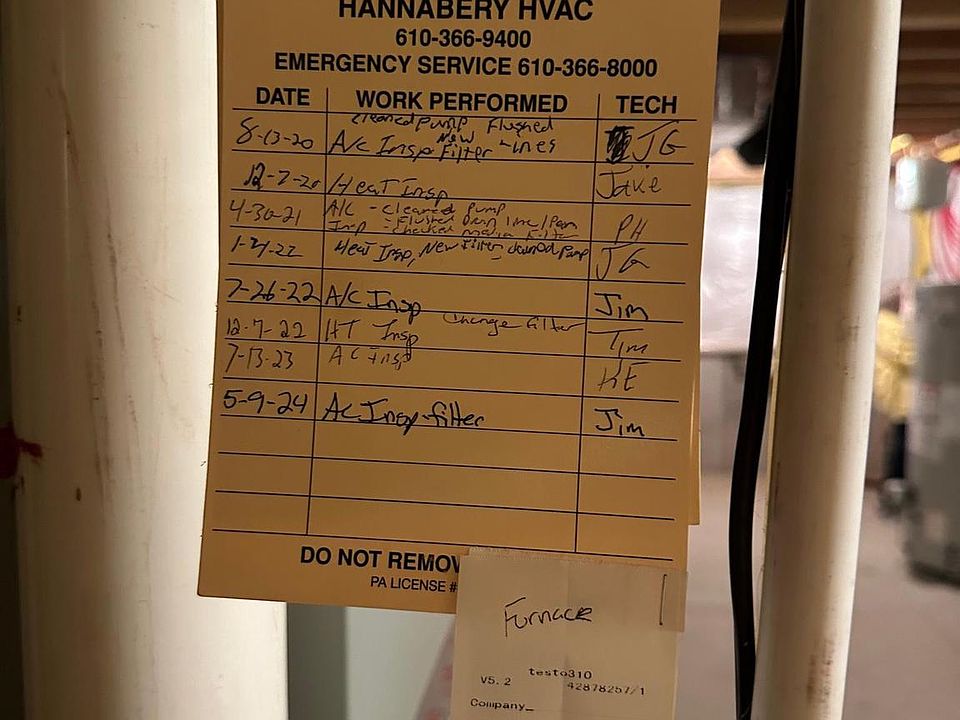 HANNABERY HVAC
610-366-9400
EMERGENCY SERVICE 610-366-8000
DATE WORK PERFORMED TECH
cleaned pump Flushed
8-13-20 A/c Insp New Filter Lines JG
12-7-20 Heat Insp Jake
4-30-21 A/C - cleaned pump PH
- Flushed Drain line/Pan
Insp - checked media filter
Heat Insp, New Filter, cleaned Pump JG
7-26-22 A/C Insp Jim
Change filter
12-7-22 HT Insp Tim
7-13-23 AC insp KE
5-9-24 AC Insp-filter Jim
DO NOT REMOV
PA LICENSE #
Furnace
testo310
V5.2 42878257/1
Company_